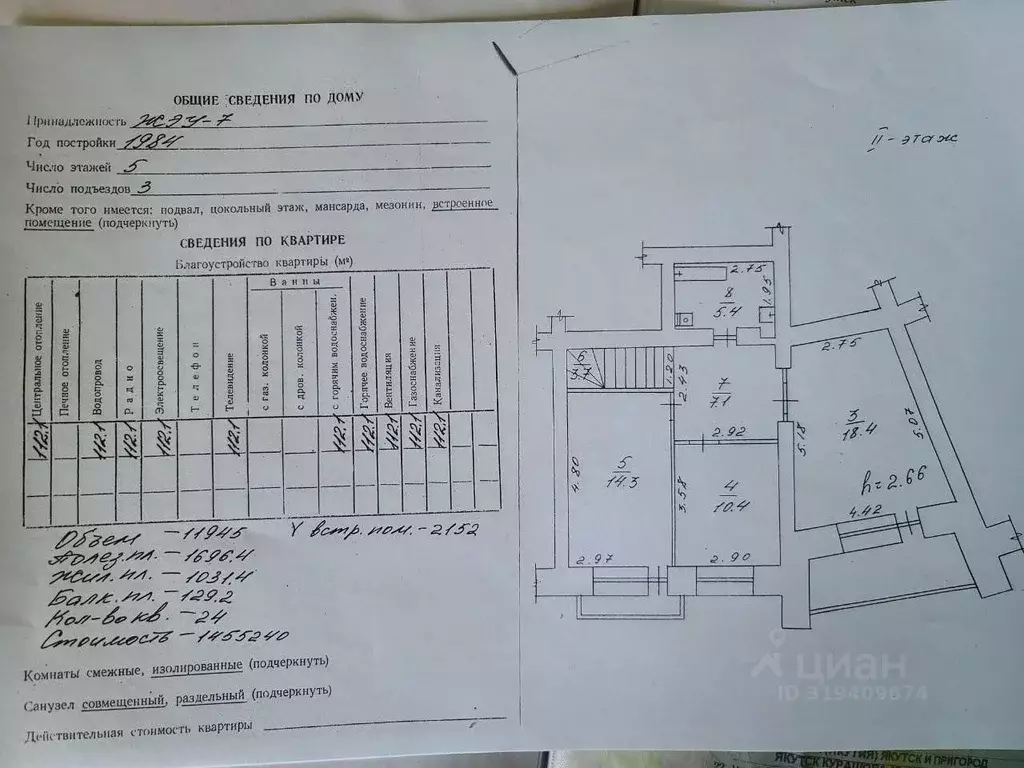 ОБЩИЕ СВЕДЕНИЯ ПО ДОМУ
Принадлежность ЖЭУ-7
Год постройки 1984
Число этажей 5
Число подъездов 3
Кроме того имеется: подвал, цокольный этаж, мансарда, мезонин, встроенное
помещение (подчеркнуть)
СВЕДЕНИЯ ПО КВАРТИРЕ
Благоустройство квартиры (м²)
Ванны
Центральное отопление
Печное отопление
Водопровод
Радио
Электроосвещение
Телефон
Телевидение
с газ. колонкой
с дров. колонкой
с горячим водоснабжен.
Горячее водоснабжение
Вентиляция
Газоснабжение
Канализация
112.1 112.1 112.1 112.1 112.1 112.1 112.1 112.1 112.1 112.1
Объем -11945 V встр.пом.-2152
Полез.пл. -1696.4
Жил.пл. -1031.4
Балк.пл. -129.2
Кол-во кв. -24
Стоимость -1455240
Комнаты смежные, изолированные (подчеркнуть)
Санузел совмещенный, раздельный (подчеркнуть)
Действительная стоимость квартиры
II-этаж
2.75
8
5.4
1.95
6
7.7
1.20
2.43
7
7.1
2.92
2.75
3
18.4
5.18
5.07
h=2.66
4.42
4.80
5
14.3
2.97
3.58
4
10.4
2.90
циан
ID 319409674
(ЯКУТИЯ) ЯКУТСК И ПРИГОРОД
ЯКУТСК